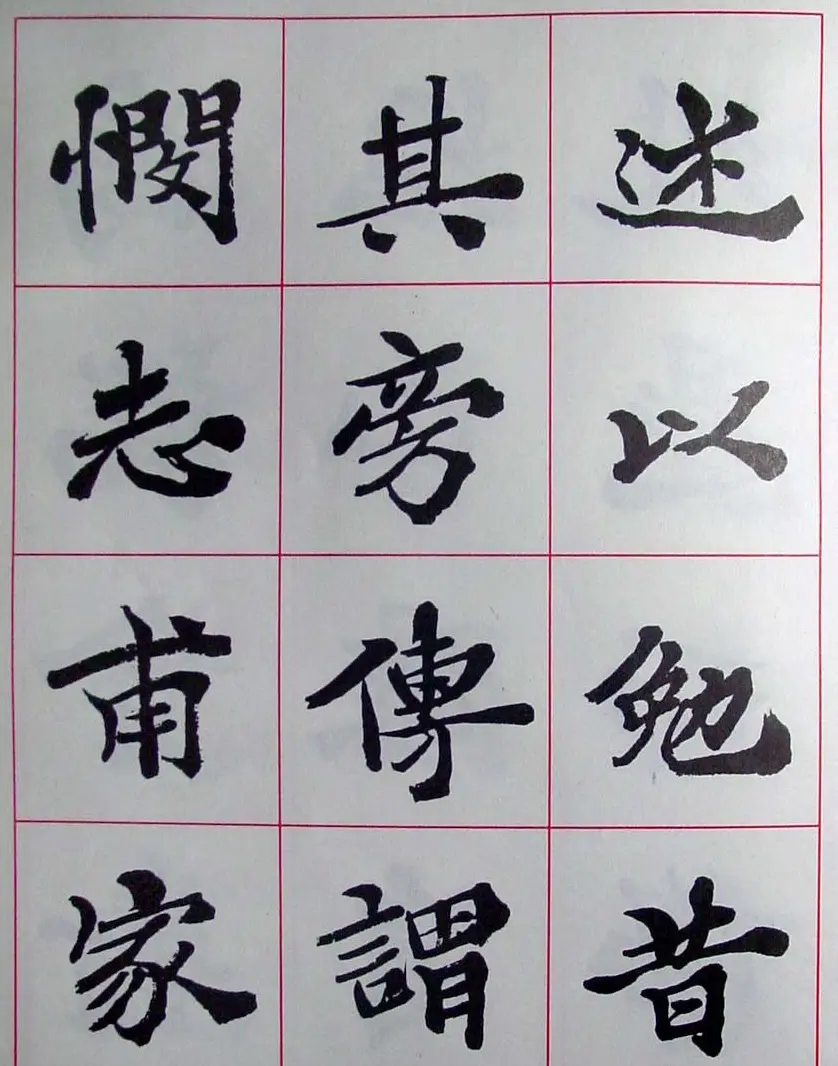 述以勉昔
其旁傳謂
憫志甫家